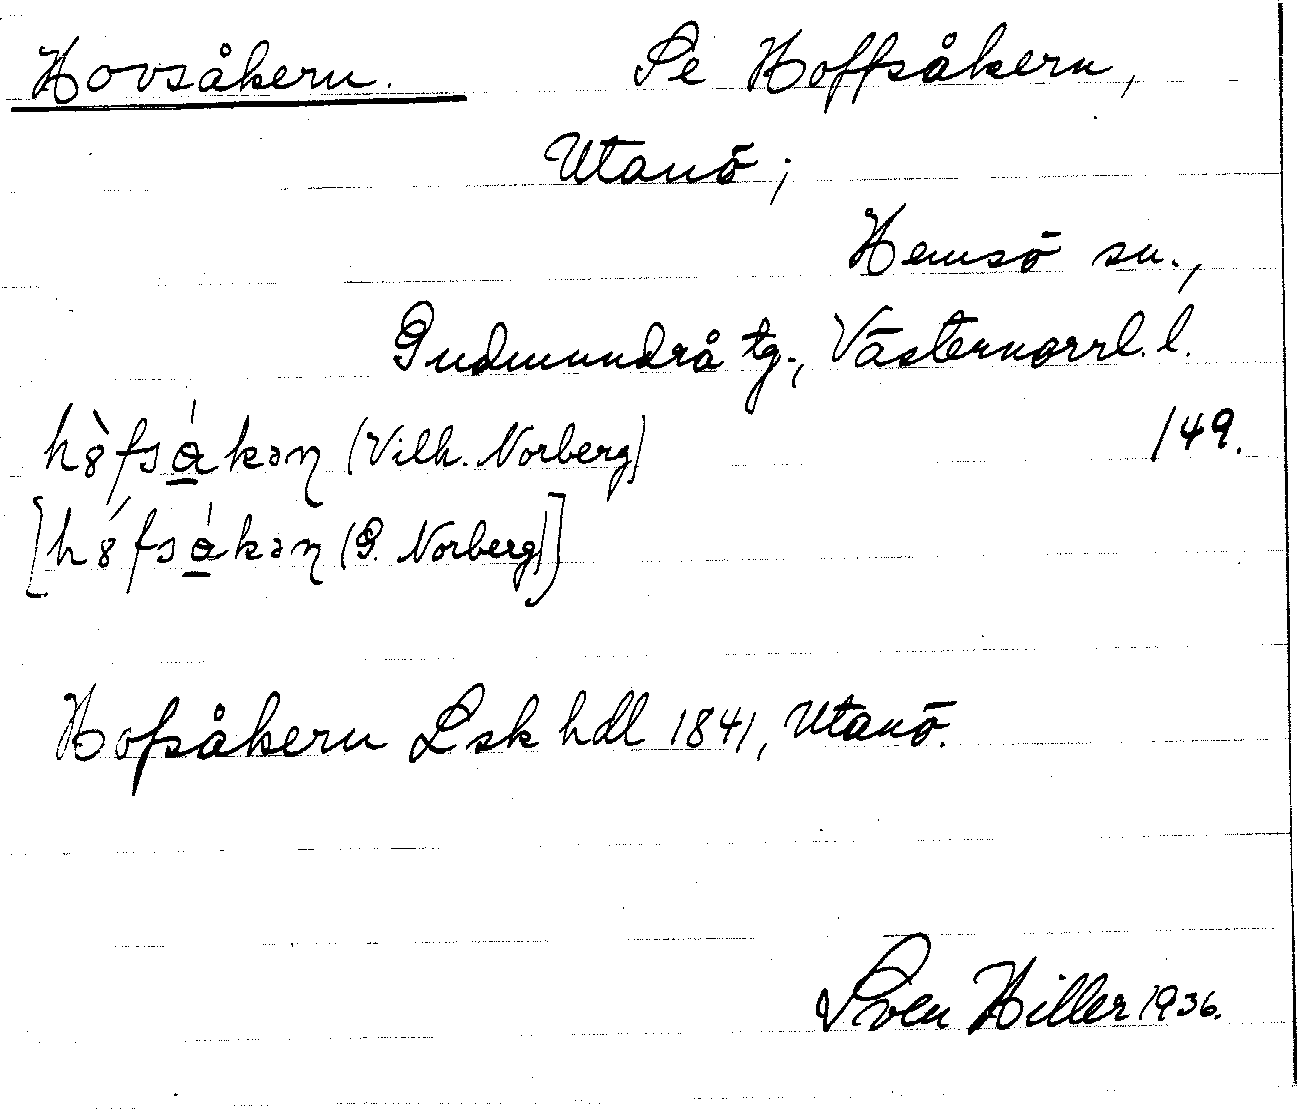 Hovsåkern. Se Hoffsåkern,
Utanö;
Hemsö sn.,
Gudmundrå tg., Västernorrl. l.
(Vilh. Norberg) 149.
(G. Norberg)]
Hofsåkern Lsk hdl 1841, Utanö.
Sven Hiller 1936.